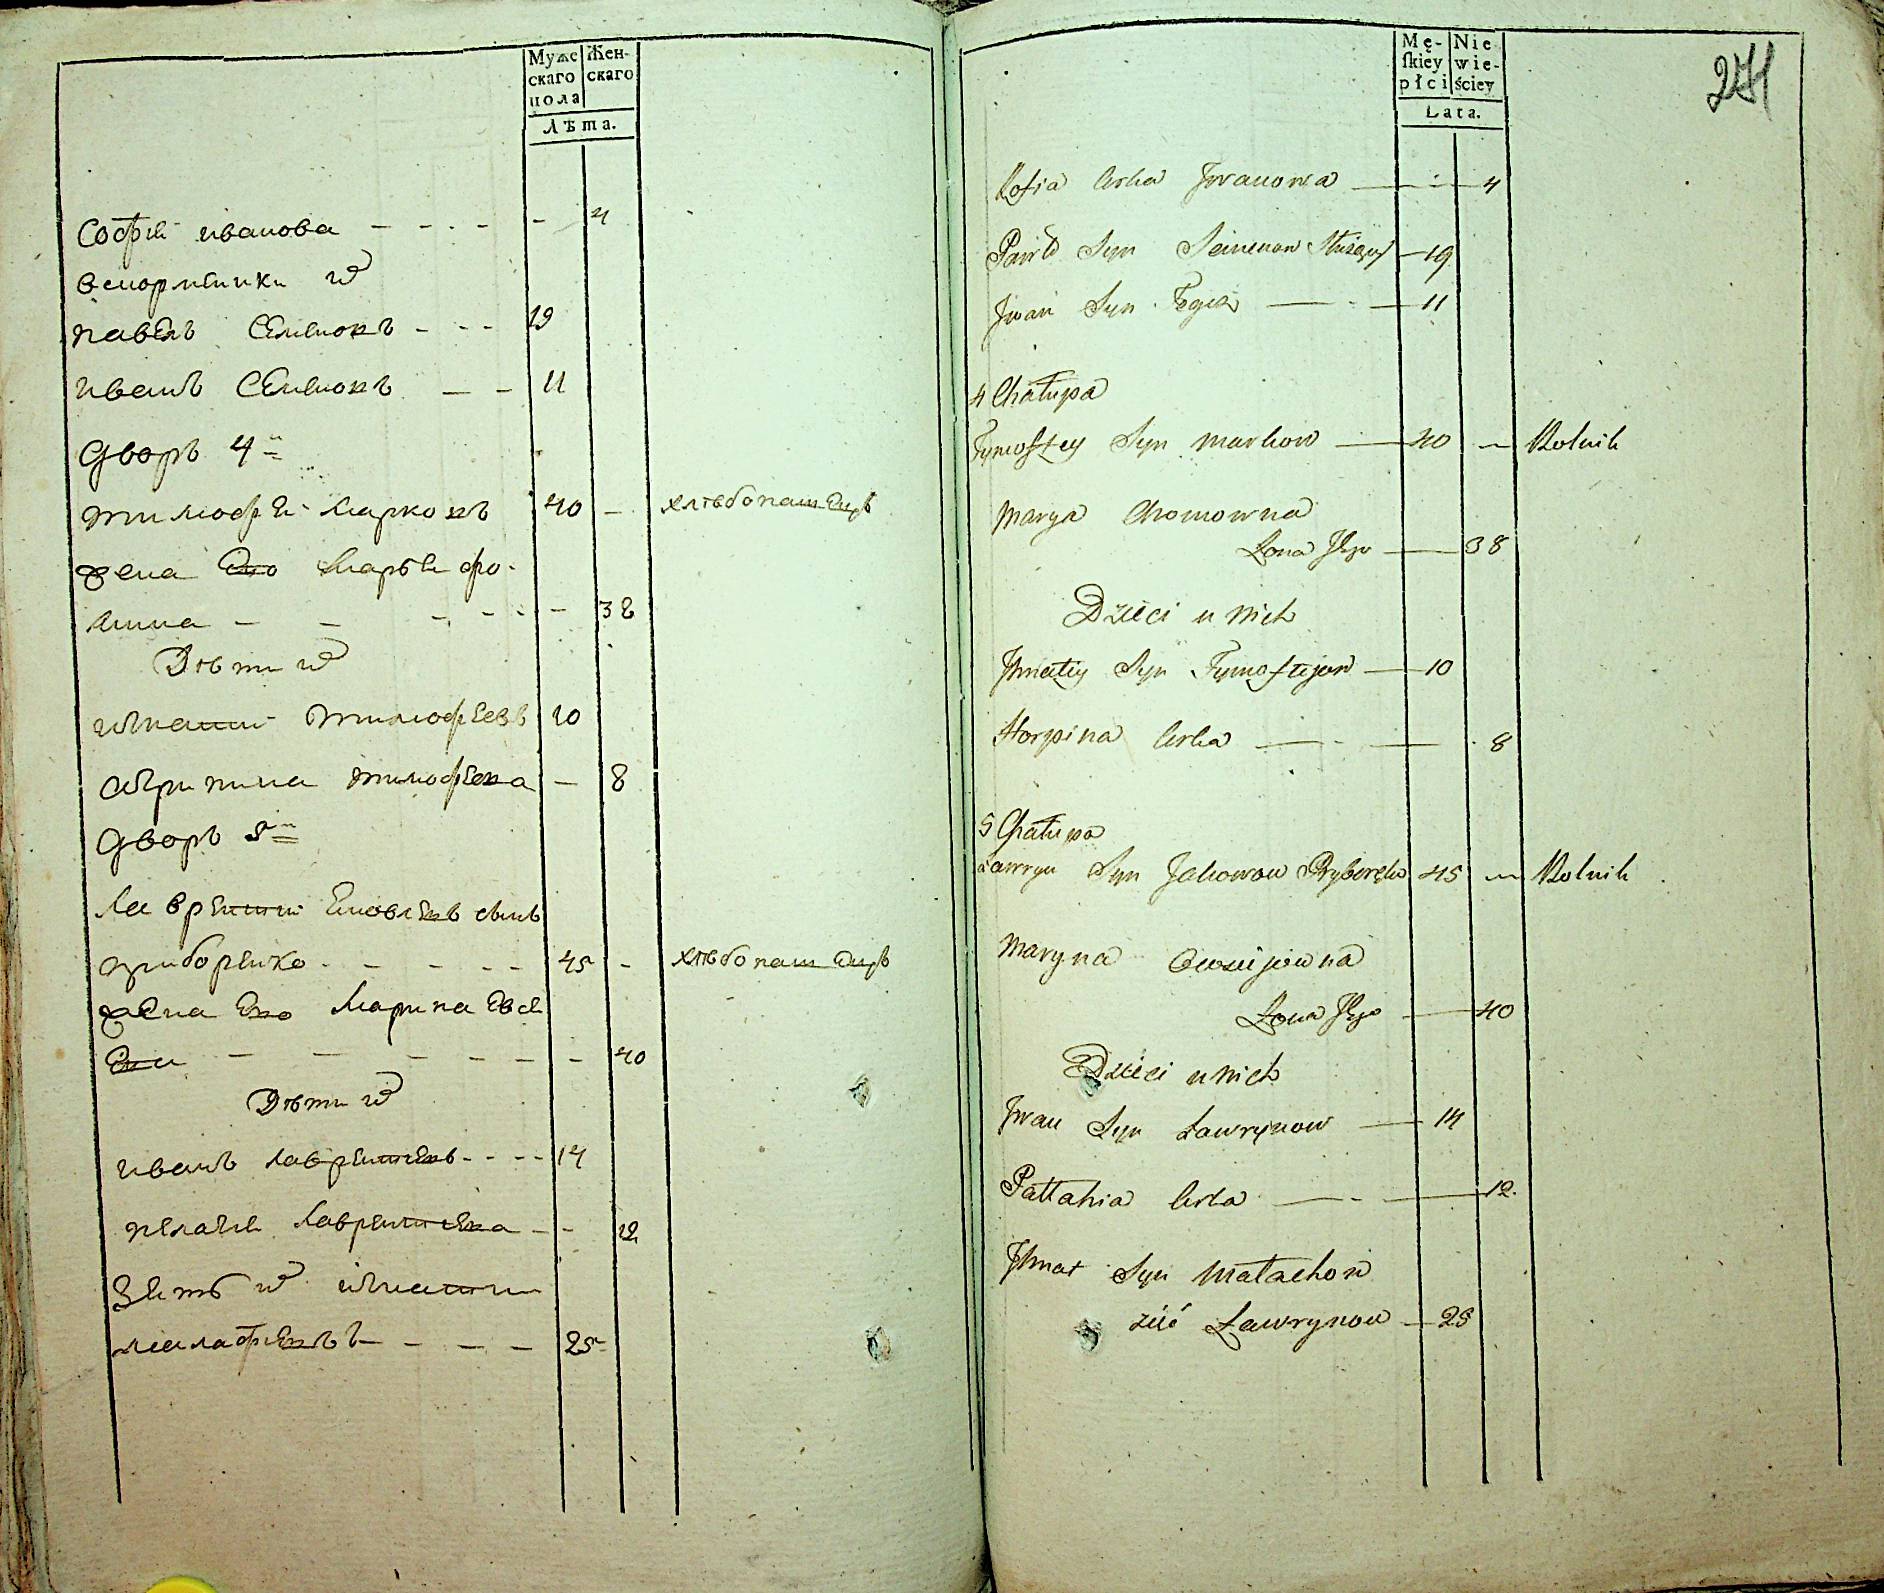 Муже
скаго
пола
Жен-
скаго
Лѣта.
Софiя иванова - - - - - 4
павелъ Семионъ - - - 19
иванъ Семионъ - - 11
дворъ 4й
тимофей марковъ 40 - хлѣбопашецъ
жена Его марья фо-
мина - - - - - - 38
Дѣти их
игнатий тимофеевъ 10
агрипина тимофева - 8
дворъ 5й
лаврентий яковлевъ сынъ
приборенко - - - - - 45 - хлѣбопашецъ
жена Его марина Евсе
Ева - - - - - - - 40
Дѣти их
иванъ лаврентиевъ - - - - 14
пелагея лаврентиева - - 12
зять их игнатий
малафиевъ - - - - 25
Mę-
skiey
płci
Nie
wie-
ściey
Lata.
271
Zofia Corka Iwanowa 4
Pawło Syn Semenow 19
Jwan Syn Tegoż 11
4 Chałupa
Tymoftey Syn Markow 40 Rolnik
Marya Chomowna
Żona Jego 38
Dzieci u Nich
Jhnatiy Syn Tymoftejow 10
Horpina Corka 8
5 Chałupa
Ławryn Syn Jakowow Pryboręko 45 Rolnik
Maryna Owsijowna
Żona Jego 40
Dzieci u Nich
Jwan Syn Ławrynow 14
Pałłahia Corka 12
Jhnat Syn Małachow
zięć Ławrynow 25